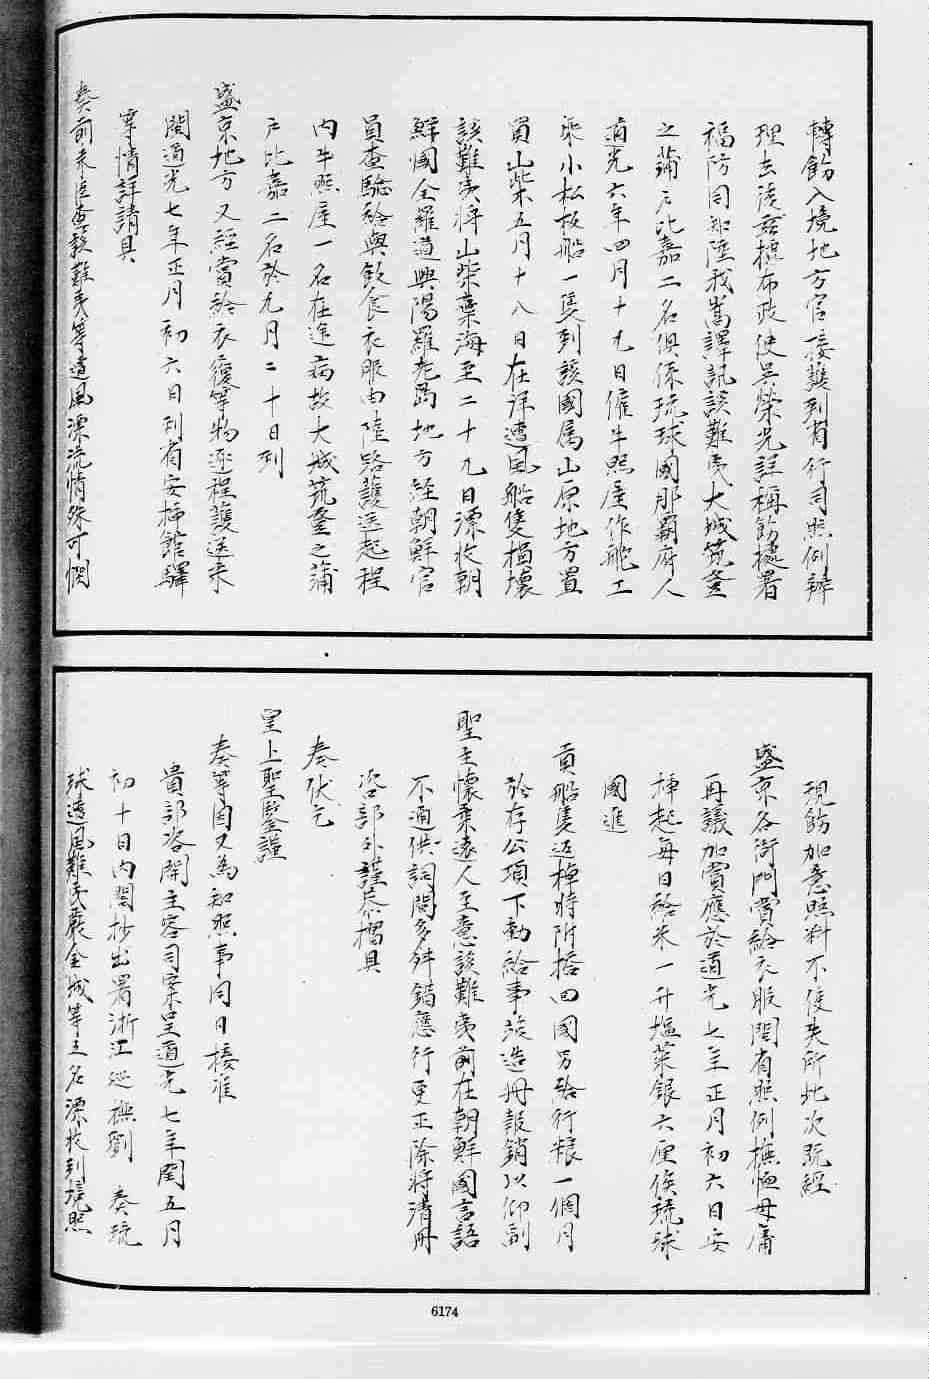 轉飭入境地方官接護到省行司照例辦
理去後茲據布政使吳榮光詳稱飭據署
福防同知陸我嵩譯訊該難夷大城筑登
之蒲戶比嘉二名俱係琉球國那霸府人
道光六年四月十九日僱牛照屋作舵工
乘小松板船一隻到該國属山原地方置
買山柴五月十八日在洋遭風船隻損壞
該難夷將山柴棄海至二十九日漂收朝
鮮國全羅道興陽羅老島地方經朝鮮官
員查驗給與飲食衣服由陸路護送起程
内牛照屋一名在途病故大城筑登之蒲
戶比嘉二名於九月二十日到
盛京地方又經賞給衣履等物逐程護送来
閩道光七年正月初六日到省安揷館驛
等情詳請具
奏前来臣查該難夷等遭風漂流情殊可憫
現飭加意照料不使失所此次既經
盛京各衙門賞給衣服閩省照例撫恤毋庸
再議加賞應於道光七年正月初六日安
揷起每日給米一升塩菜銀六厘俟琉球
國進
貢船隻返棹時附搭回國另給行粮一個月
於存公項下動給事竣造册報銷以仰副
聖主懷柔遠人至意該難夷前在朝鮮國言語
不通供詞間多舛錯應行更正除將清册
咨部外謹恭摺具
奏伏乞
皇上聖鑒謹
奏等因又為知照事同日接准
貴部咨開主客司案呈道光七年閏五月
初十日内閣抄出署浙江巡撫劉 奏琉
球遭風難民嚴金城等三名漂收到境照